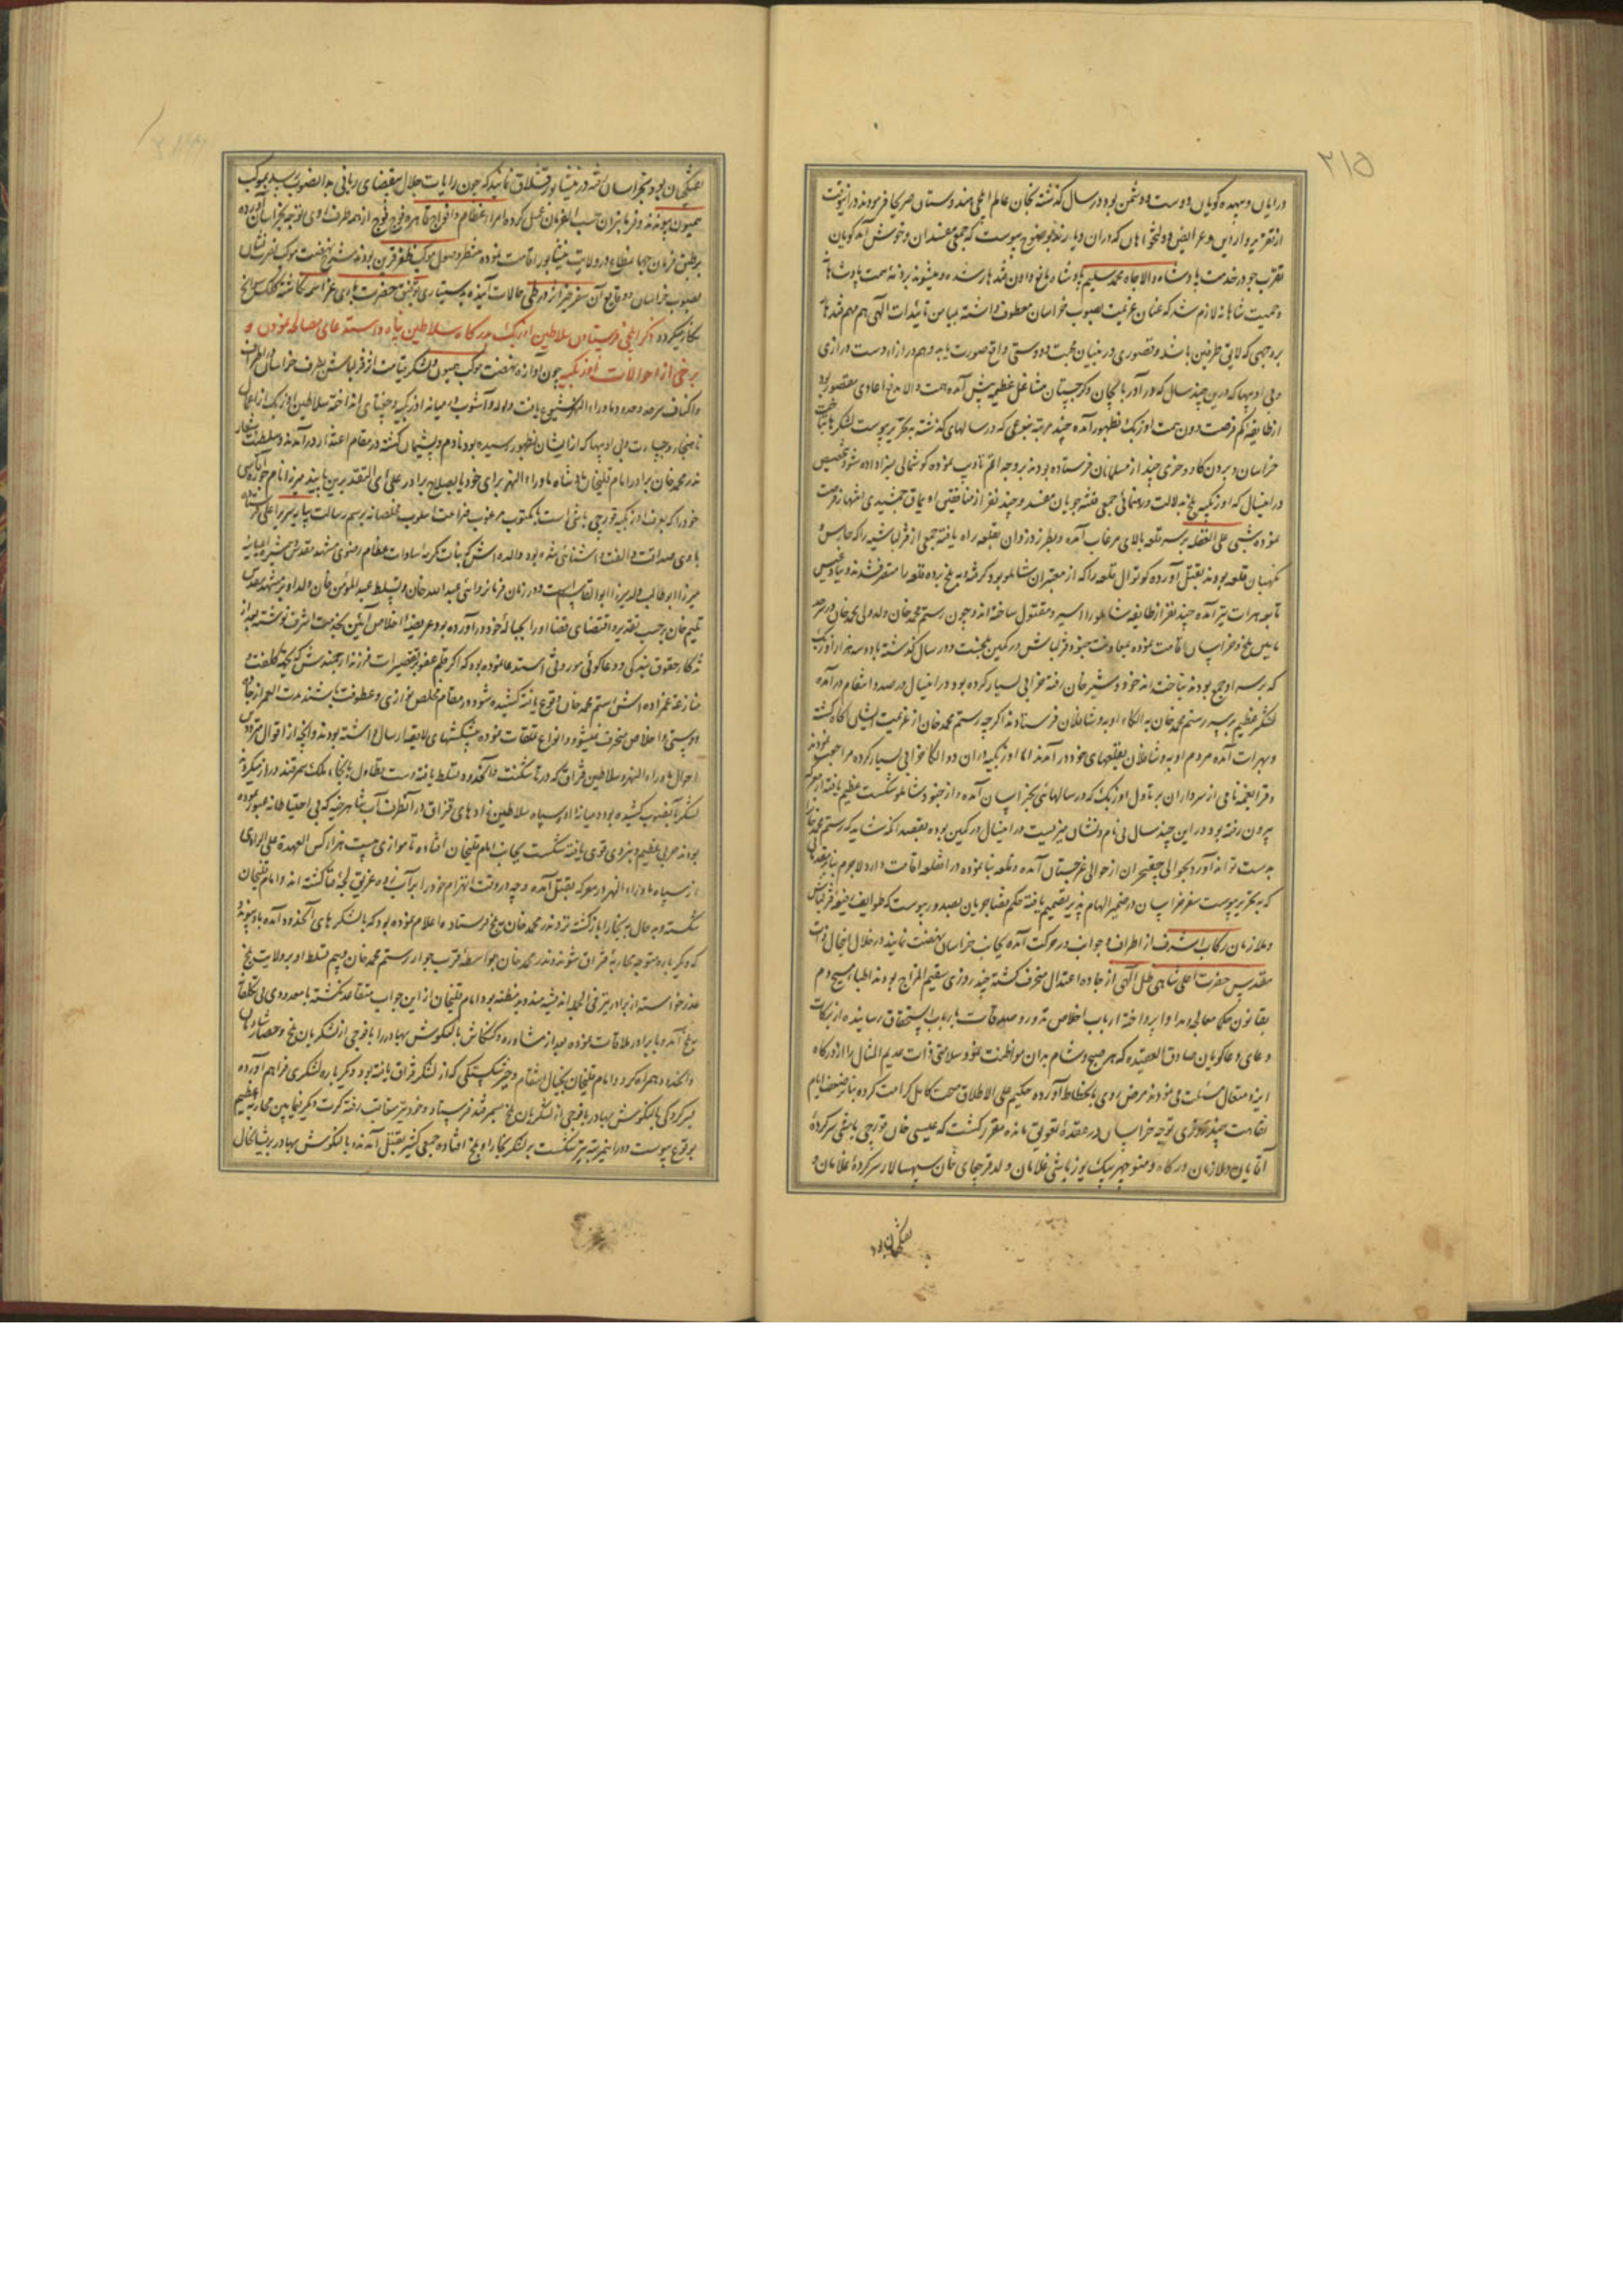 ۲۱۵
درایان و بیهده گویان دوست و دشمن بود در سال گذشته بخان عالم ایلچی هندوستان فرموده
از تقریر واردین و عرایض دولتخواهان که در آن دیار بوضوح پیوست که جمعی مفسدان و خوش آمد گویان
تقرب جو در خدمت پادشاه والاجاه محمد سلیم پادشاه مانع دادن قندهار شده
و حمیت شاهانه لازم شد که عنان عزیمت بصوب خراسان معطوف داشته بمیامن تائیدات الهی هم مهم قندهار
بروجهی که لایق طرفین باشد و قصوری در بنیان محبت و دوستی واقع صورت یابد و هم در ازاء دست درازی
و بی ادبیها که درین چند سال که در آذربایجان و گرجستان مشاغل عظیمه پیش آمده همت والا بدفع اعادی مقصور بود
از طایفه کم فرصت دون همت اوزبک بظهور آمده چند مرتبه بنوعی که در سالهای گذشته بتحریر پیوست لشکرها بتاخت
خراسان و بردن گاو و خری چند از مسلمانان فرستاده بودند بروجه اتم تادیب نموده گوشمالی بسزا داده شود بتخصیص
در اینسال که اوزبکیه بلخ بدلالت و رهنمائی جمعی فتنه جویان مفسد و چند نفر از منافقین اویماق جمشیدی انتهاز فرصت
نموده شبی علی الغفله بر سر قلعه بالای مرغاب آمده و بطرز دزدان بقلعه راه یافته جمعی از قزلباشیه را که حارس و
نگهبان قلعه بودند بقتل آورده کوتوال قلعه را که از معتبران شاملو بود گرفته به بلخ برده قلعه را متصرف شدند و
تابعه هرات نیز آمده چند نفر از طایفه شاملو را اسیر و مقتول ساخته اند و چون رستم محمدخان ولد ولی محمدخان در سرحد
مابین بلخ و خراسان اقامت نموده بمعاونت جنود قزلباش در کمین بلخست و در سال گذشته با دو سه هزار اوزبک
که بر سر او جمع بودند بتاخت اندخود و شبرغان رفته خرابی بسیار کرده بود در اینسال در صدد انتقام در آمده
لشکر عظیم بر سر رستم محمدخان به الکاء اوبه و شافلان فرستادند اگرچه رستم محمدخان از عزیمت ایشان آگاه گشته
و بهرات آمده مردم اوبه و شافلان بقلعهای خود در آمدند اما اوزبکیه در آن دو الکا خرابی بسیار کرده مراجعت نمودند
و قرا لغمه نامی از سرداران بر تاول اوزبک که در سالهائی بخراسان آمده و از جنود شاملو شکست عظیم یافته از معرکه
بیرون رفته بود و در این چند سال بی نام و نشان میزیست در اینسال در کمین بوده بقصد آنکه شاید که رستم محمدخان را
بدست تواند آورد بحوالی چقچران از حوالی غرجستان آمده و قلعه بنا نموده در آن قلعه اقامت دارد لاجرم بنابر مقدماتی
که بتحریر پیوست سفر خراسان در ضمیر الهام پذیر تصمیم یافته حکم قضا جریان بصدور پیوست که طوایف رفیعه قزلباش
و ملازمان رکاب اشرف از اطراف و جوانب در حرکت آمده بجانب خراسان نهضت نمایند در خلال اینحال ذات
مقدس حضرت اعلی شاهی ظل الهی از جاده اعتدال منحرف گشته چند روزی سقیم المزاج بودند اطباء مسیح دم
بقانون حکما معالجه و مداوا پرداخته ارباب اخلاص نذور و صدقات بارباب استحقاق رسانیده از برکات
دعای دعاگویان صادق العقیده که هر صبح و شام بدان مواظبت نمود و سلامتی ذات عدیم المثال را از درگاه
ایزد متعال مسئلت می نمودند مرض روی بانحطاط آورده حکیم علی الاطلاق صحت کامل کرامت کرده بنابر ضعف ایام
نقاهت چند روزی توجه خراسان در عقده تعویق مانده مقرر گشت که عیسی خان قورچی باشی سرکرده
آقایان و ملازمان درگاه و منوچهر بیک یوزباشی غلامان ولد قرچغای خان سپهسالار سرکرده غلامان و
تفنگچیان بود
تفنگچیان بود بخراسان رفته در نیشابور قشلاق نمایند که چون رایات جلال بمقتضای ربانی بدانصوب رسد بموکب
همیون پیوندند و فرمانبران حسب الفرمان عمل کرده امراء عظام و افواج قاهره فوج فوج از همه طرف روی توجه بخراسان آورده
بر طبق فرمان جهانمطاع در ولایت نیشابور اقامت نموده منتظر وصول موکب ظفر قرین بودند شرح نهضت موکب نصرت نشان
بصوب خراسان و وقایع آن سفر خیر اثر در طی حالات آینده به دستیاری توفیق حضرت باری عز اسمه نگاشته کلک سوانح
نگار میگردد ذکر ایلچی فرستادن سلاطین اوزبک بدرگاه سلاطین پناه و استدعای مصالحه نمودن و
برخی از احوالات اوزبکیه چون آوازه نهضت موکب همیون و لشکر قیامت اثر قزلباش بطرف خراسان در اطراف
و اکناف سرحد و حدود ماوراء النهر شیوع یافت ولوله و آشوب در میانه اوزبکیه و جغتای انداخته سلاطین اوزبک از اعمال
ناهنجار و جسارت و بی ادبیها که از ایشان بظهور رسیده بود نادم و پشیمان گشته در مقام اعتذار در آمدند و سلطنت شعار
ندر محمدخان برادر امام قلیخان پادشاه ماوراء النهر برای خود یا بصلاح برادر علی ای التقدیرین پاینده میرزا نام
خود را که بعرف اوزبکیه قورچی باشی است با مکتوب مرغوب ضراعت اسلوب مخلصانه برسم رسالت بپایه سریر اعلی فرستاده
با وی صداقت و الفت و آشنائی شده بود والده اش که بنات مکرمه سادات عظام رضوی مشهد مقدس
میرزا ابوطالب ولد میرزا ابوالقاسم است و در زمان فرمانروائی عبدالله خان و تسلط عبدالمؤمن خان ولد او بر مشهد مقدس
یتیم خان برحسب تقدیر و اقتضای قضا او را بحباله خود در آورده بود عریضه اخلاص آئین بخدمت اشرف نوشته
تذکار حقوق بندگی و دعاگوئی موروثی استدعا نموده بود که اگر رقم عفو بر تقصیرات فرزند ارجمندش
منازعه عمزاده اش رستم محمدخان وقوع یافته کشیده شود و در مقام مخلص نوازی و عطوفت باشند مدت العمر از جاده
دوستی و اخلاص منحرف نمیشود و انواع تلطفات نموده پیشکشهای لایقه ارسال داشته بودند و آنچه از اقوال مترددین
احوال ماوراء النهر و سلاطین قزاق که در تاشکنت و آنحدود تسلط یافته دست تطاول بالکاء ملک سمرقند دراز میکردند
لشکر بآنصوب کشیده بود و میانه او و سپاه سلاطین زادهای قزاق در آنطرف آب شاهرخیه که بی احتیاطانه عبور نموده
بودند حربی عظیم و نبردی قوی یافته شکست بجانب امام قلیخان افتاده تا موازی بیست هزار کس العهدة علی الراوی
از سپاه ماوراء النهر در معرکه بقتل آمده و چه در وقت انهزام خود را بر آب زده غریق لجه فنا گشته اند و امام قلیخان
شکسته و بد حال به بخارا بازگشته نزد ندر محمدخان به بلخ فرستاده و اعلام نموده بود که با لشکرهای آنحدود آمده باو پیوندد
که دیگر باره متوجه محاربه قزاق شوند و ندر محمدخان بواسطه قرب جوار رستم محمدخان و بیم تسلط او بر ولایت بلخ
عذر خواسته از برادر نیز فی الجمله اندیشه مند و بدمظنه بود و امام قلیخان از این جواب متقاعد نگشته با معدودی بی تکلفانه
به بلخ آمده و با برادر ملاقات نموده بعد از مشاوره و کنکاش یالنکوش بهادر را با فوجی از لشکریان بلخ و حصار شادمان
و آنحدود همراه کرد و امام قلیخان بخیال انتقام و جبر شکستگی که از لشکر قزاق یافته بود دیگر باره لشکری فراهم آورده
بسرکردگی یالنکوش بهادر با فوجی از لشکریان بلخ بسمرقند فرستاد و خود نیز متعاقب رفته کرت دیگر فیمابین محاربه عظیم
بوقوع پیوست و در اینمرتبه نیز شکست بر لشکر بخارا و بلخ افتاده جمعی کثیر بقتل آمدند و یالنکوش بهادر پریشانحال